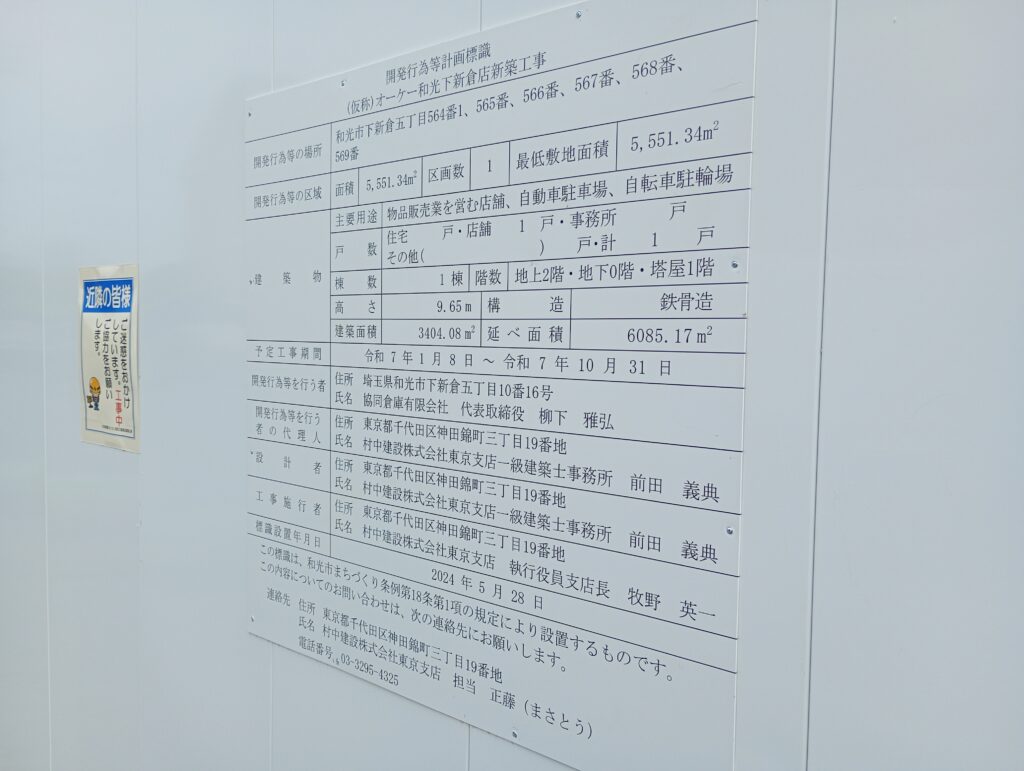 開発行為等計画標識
(仮称)オーケー和光下新倉店新築工事
開発行為等の場所 和光市下新倉五丁目564番1、565番、566番、567番、568番、
569番
開発行為等の区域 面積 5,551.34m² 区画数 1 最低敷地面積 5,551.34m²
建築物 主要用途 物品販売業を営む店舗、自動車駐車場、自転車駐輪場
戸数 住宅 戸・店舗 1 戸・事務所 戸
その他( ) 戸・計 1 戸
棟数 1棟 階数 地上2階・地下0階・塔屋1階
高さ 9.65m 構造 鉄骨造
建築面積 3404.08m² 延べ面積 6085.17m²
予定工事期間 令和7年1月8日~令和7年10月31日
開発行為等を行う者 住所 埼玉県和光市下新倉五丁目10番16号
氏名 協同倉庫有限会社 代表取締役 柳下 雅弘
開発行為等を行う
者の代理人 住所 東京都千代田区神田錦町三丁目19番地
氏名 村中建設株式会社東京支店一級建築士事務所 前田 義典
設計者 住所 東京都千代田区神田錦町三丁目19番地
氏名 村中建設株式会社東京支店一級建築士事務所 前田 義典
工事施行者 住所 東京都千代田区神田錦町三丁目19番地
氏名 村中建設株式会社東京支店 執行役員支店長 牧野 英一
標識設置年月日 2024年5月28日
この標識は、和光市まちづくり条例第18条第1項の規定により設置するものです。
この内容についてのお問い合わせは、次の連絡先にお願いします。
連絡先 住所 東京都千代田区神田錦町三丁目19番地
氏名 村中建設株式会社東京支店 担当 正藤(まさとう)
電話番号、03-3295-4325
近隣の皆様
ご迷惑をおかけ
しています。工事中
ご協力をお願い
します。